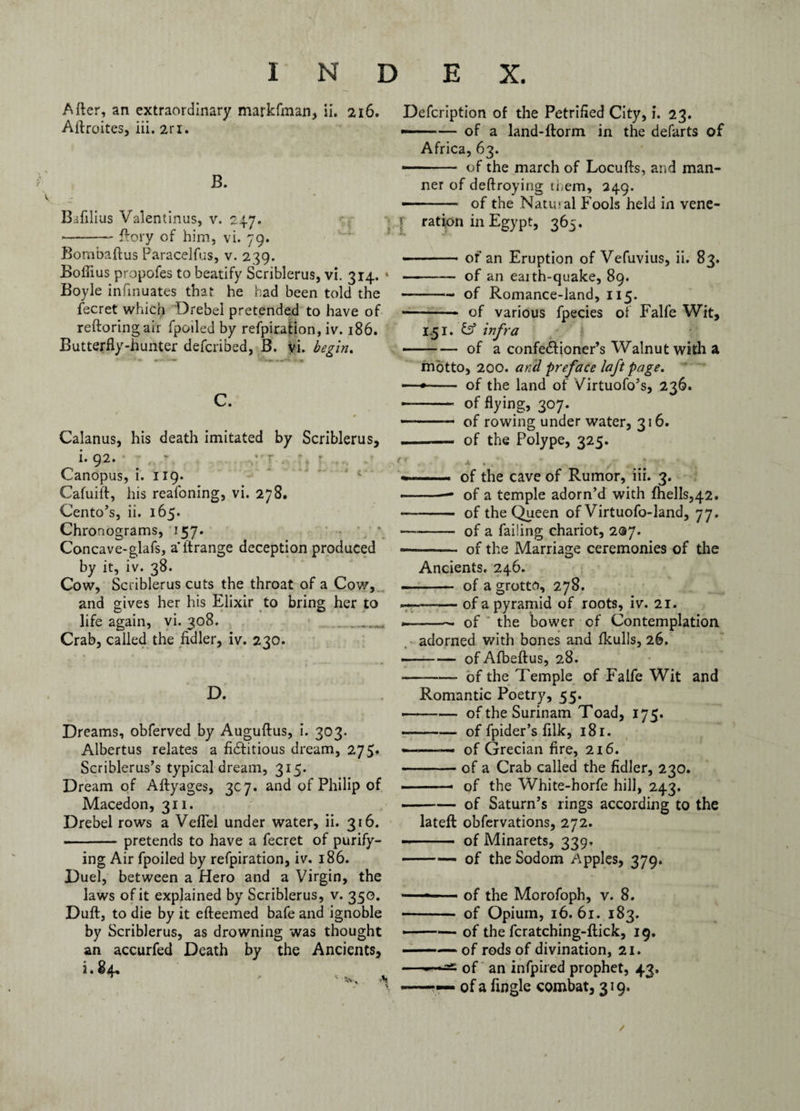 INDEX.
After, an extraordinary markſman, ii. 216.
Aſtroites, iii. 211.
B.
Baſilius Valentinus, v. 247.
——— ſtory of him, vi. 79.
Bombaſtus Paracelſus, v. 239.
Boſſius propoſes to beatify Scriblerus, vi. 314.
Boyle inſinuates that he had been told the
ſecret which Drebel pretended to have of
reſtoring air ſpoiled by reſpiration, iv. 186.
Butterfly-hunter deſcribed, B. vi. begin.
C.
Calanus, his death imitated by Scriblerus,
i. 92.
Canopus, i. 119.
Caſuiſt, his reaſoning, vi. 278.
Cento's, ii. 165.
Chronograms, 157.
Concave-glaſs, a ſtrange deception produced
by it, iv. 38.
Cow, Scriblerus cuts the throat of a Cow,
and gives her his Elixir to bring her to
life again, vi. 308.
Crab, called the fidler, iv. 230.
D.
Dreams, obſerved by Auguſtus, i. 303.
Albertus relates a fictitious dream, 275.
Scriblerus's typical dream, 315.
Dream of Aſtyages, 307. and of Philip of
Macedon, 311.
Drebel rows a Veſſel under water, ii. 316.
——— pretends to have a ſecret of purify-
ing Air ſpoiled by reſpiration, iv. 186.
Duel, between a Hero and a Virgin, the
laws of it explained by Scriblerus, v. 350.
Duſt, to die by it eſteemed baſe and ignoble
by Scriblerus, as drowning was thought
an accurſed Death by the Ancients,
i. 84.
Deſcription of the Petrified City, i. 23.
——— of a land-ſtorm in the deſarts of
Africa, 63.
——— of the march of Locuſts, and man-
ner of deſtroying them, 249.
——— of the Natural Fools held in vene-
ration in Egypt, 365.
——— of an Eruption of Veſuvius, ii. 83.
——— of an earth-quake, 89.
——— of Romance-land, 115.
——— of various ſpecies of Falſe Wit,
151. & infra
——— of a confectioner's Walnut with a
motto, 200. and preface laſt page.
——— of the land of Virtuoſo's, 236.
——— of flying, 307.
——— of rowing under water, 316.
——— of the Polype, 325.
——— of the cave of Rumor, iii. 3.
——— of a temple adorn'd with ſhells, 42.
——— of the Queen of Virtuoſo-land, 77.
——— of a ſailing chariot, 207.
——— of the Marriage ceremonies of the
Ancients. 246.
——— of a grotto, 278.
——— of a pyramid of roots, iv. 21.
——— of the bower of Contemplation
adorned with bones and ſkulls, 26.
——— of Aſbeſtus, 28.
——— of the Temple of Falſe Wit and
Romantic Poetry, 55.
——— of the Surinam Toad, 175.
——— of ſpider's ſilk, 181.
——— of Grecian fire, 216.
——— of a Crab called the fidler, 230.
——— of the White-horſe hill, 243.
——— of Saturn's rings according to the
lateſt obſervations, 272.
——— of Minarets, 339.
——— of the Sodom Apples, 379.
——— of the Moroſoph, v. 8.
——— of Opium, 16. 61. 183.
——— of the ſcratching-ſtick, 19.
——— of rods of divination, 21.
——— of an inſpired prophet, 43.
——— of a ſingle combat, 319.